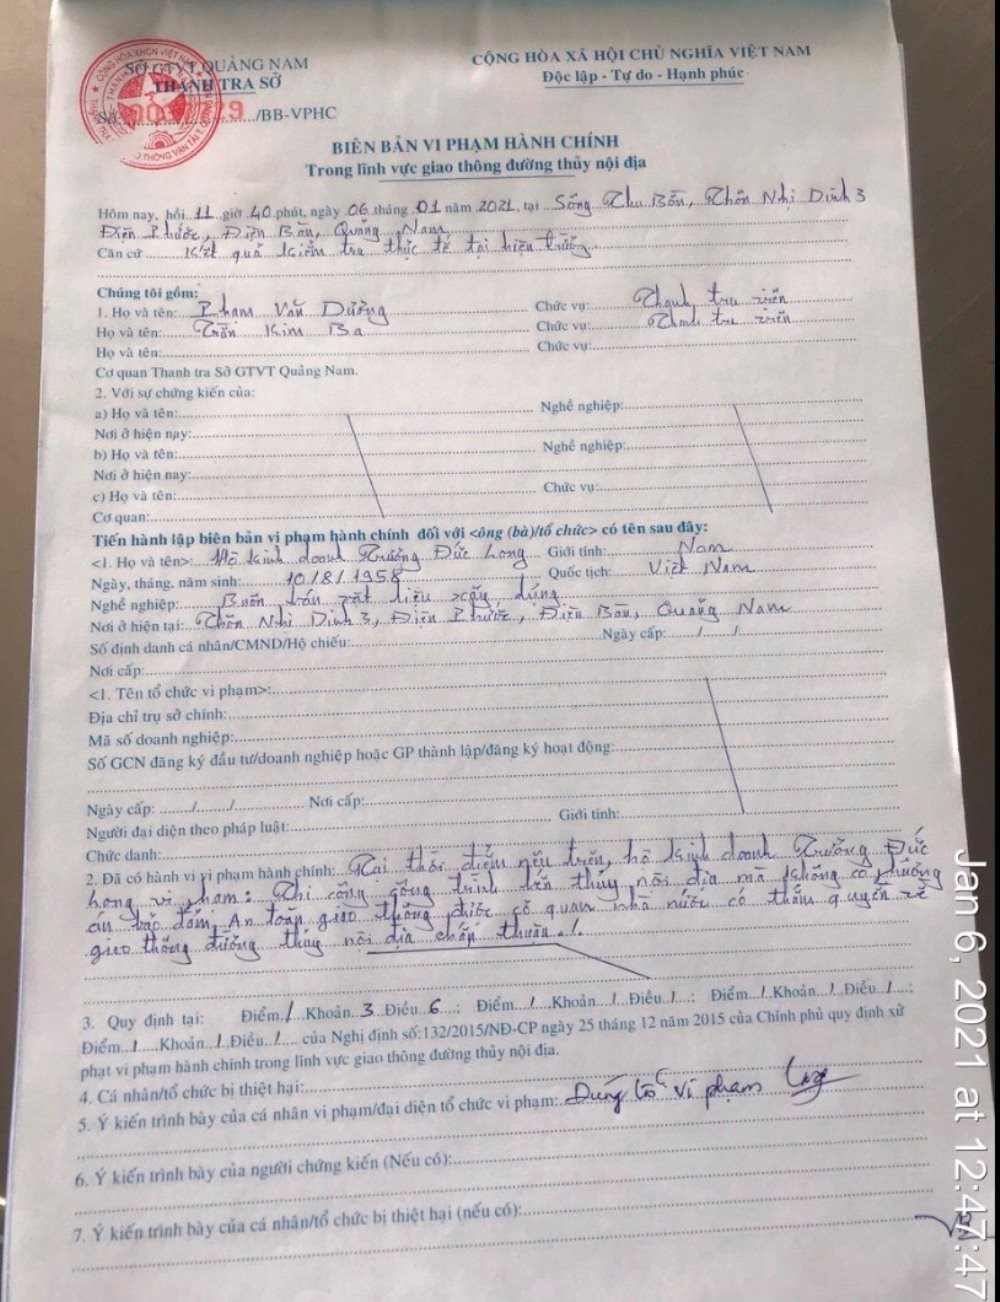 SỞ GTVT QUẢNG NAM
THANH TRA SỞ
Số: /BB-VPHC
CỘNG HÒA XÃ HỘI CHỦ NGHĨA VIỆT NAM
Độc lập - Tự do - Hạnh phúc
BIÊN BẢN VI PHẠM HÀNH CHÍNH
Trong lĩnh vực giao thông đường thủy nội địa
Hôm nay, hồi 11 giờ 40 phút, ngày 06 tháng 01 năm 2021, tại Sông Thu Bồn, Thôn Nhị Dinh 3
Điện Phước, Điện Bàn, Quảng Nam
Căn cứ Kết quả kiểm tra thực tế tại hiện trường
Chúng tôi gồm:
1. Họ và tên: Phạm Văn Dưỡng Chức vụ: Thanh tra viên
Họ và tên: Trần Kim Ba Chức vụ: Thanh tra viên
Họ và tên: Chức vụ:
Cơ quan Thanh tra Sở GTVT Quảng Nam.
2. Với sự chứng kiến của:
a) Họ và tên: Nghề nghiệp:
Nơi ở hiện nay:
b) Họ và tên: Nghề nghiệp:
Nơi ở hiện nay:
c) Họ và tên: Chức vụ:
Cơ quan:
Tiến hành lập biên bản vi phạm hành chính đối với <ông (bà)/tổ chức> có tên sau đây:
<1. Họ và tên>: Hộ kinh doanh Trương Đức Long Giới tính: Nam
Ngày, tháng, năm sinh: 10/8/1958 Quốc tịch: Việt Nam
Nghề nghiệp: Buôn bán vật liệu xây dựng
Nơi ở hiện tại: Thôn Nhị Dinh 3, Điện Phước, Điện Bàn, Quảng Nam
Số định danh cá nhân/CMND/Hộ chiếu: Ngày cấp: / /
Nơi cấp:
<1. Tên tổ chức vi phạm>:
Địa chỉ trụ sở chính:
Mã số doanh nghiệp:
Số GCN đăng ký đầu tư/doanh nghiệp hoặc GP thành lập/đăng ký hoạt động:
Ngày cấp: / / Nơi cấp:
Người đại diện theo pháp luật: Giới tính:
Chức danh:
2. Đã có hành vi vi phạm hành chính: Tại thời điểm nêu trên, hộ kinh doanh Trương Đức
Long vi phạm: Thi công công trình trên thủy nội địa mà không có phương
án bảo đảm An toàn giao thông được cơ quan nhà nước có thẩm quyền về
giao thông đường thủy nội địa chấp thuận./.
3. Quy định tại: Điểm / Khoản 3 Điều 6; Điểm / Khoản / Điều /; Điểm / Khoản / Điều /;
Điểm / Khoản / Điều / của Nghị định số:132/2015/NĐ-CP ngày 25 tháng 12 năm 2015 của Chính phủ quy định xử
phạt vi phạm hành chính trong lĩnh vực giao thông đường thủy nội địa.
4. Cá nhân/tổ chức bị thiệt hại:
5. Ý kiến trình bày của cá nhân vi phạm/đại diện tổ chức vi phạm: Đúng lỗi vi phạm
6. Ý kiến trình bày của người chứng kiến (Nếu có):
7. Ý kiến trình bày của cá nhân/tổ chức bị thiệt hại (nếu có):
Jan 6, 2021 at 12:47:47